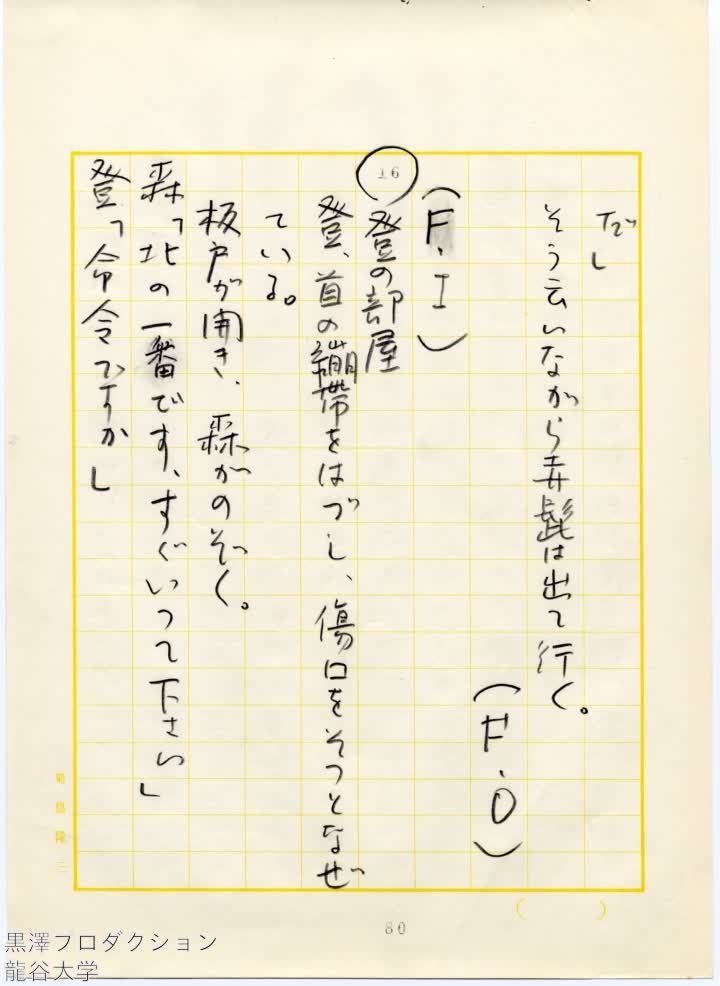 だ」
そう云いながら赤髭は出て行く。
(F・O)
(F・I)
16
登の部屋
登、首の繃帯をはづし、傷口をそつとなぜ
ている。
板戸が開き、森がのぞく。
森「北の一番です、すぐいつて下さい」
登「命令ですか」
菊島隆三
80
黒澤プロダクション
龍谷大学